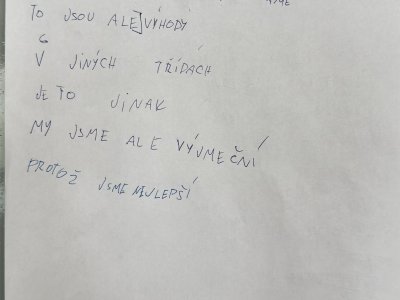 TO JSOU ALE VÝHODY
6
V JINÝCH TŘÍDÁCH
JE TO JINAK
MY JSME ALE VÝJMEČNÍ
PROTOŽ JSME NEJLEPŠÍ